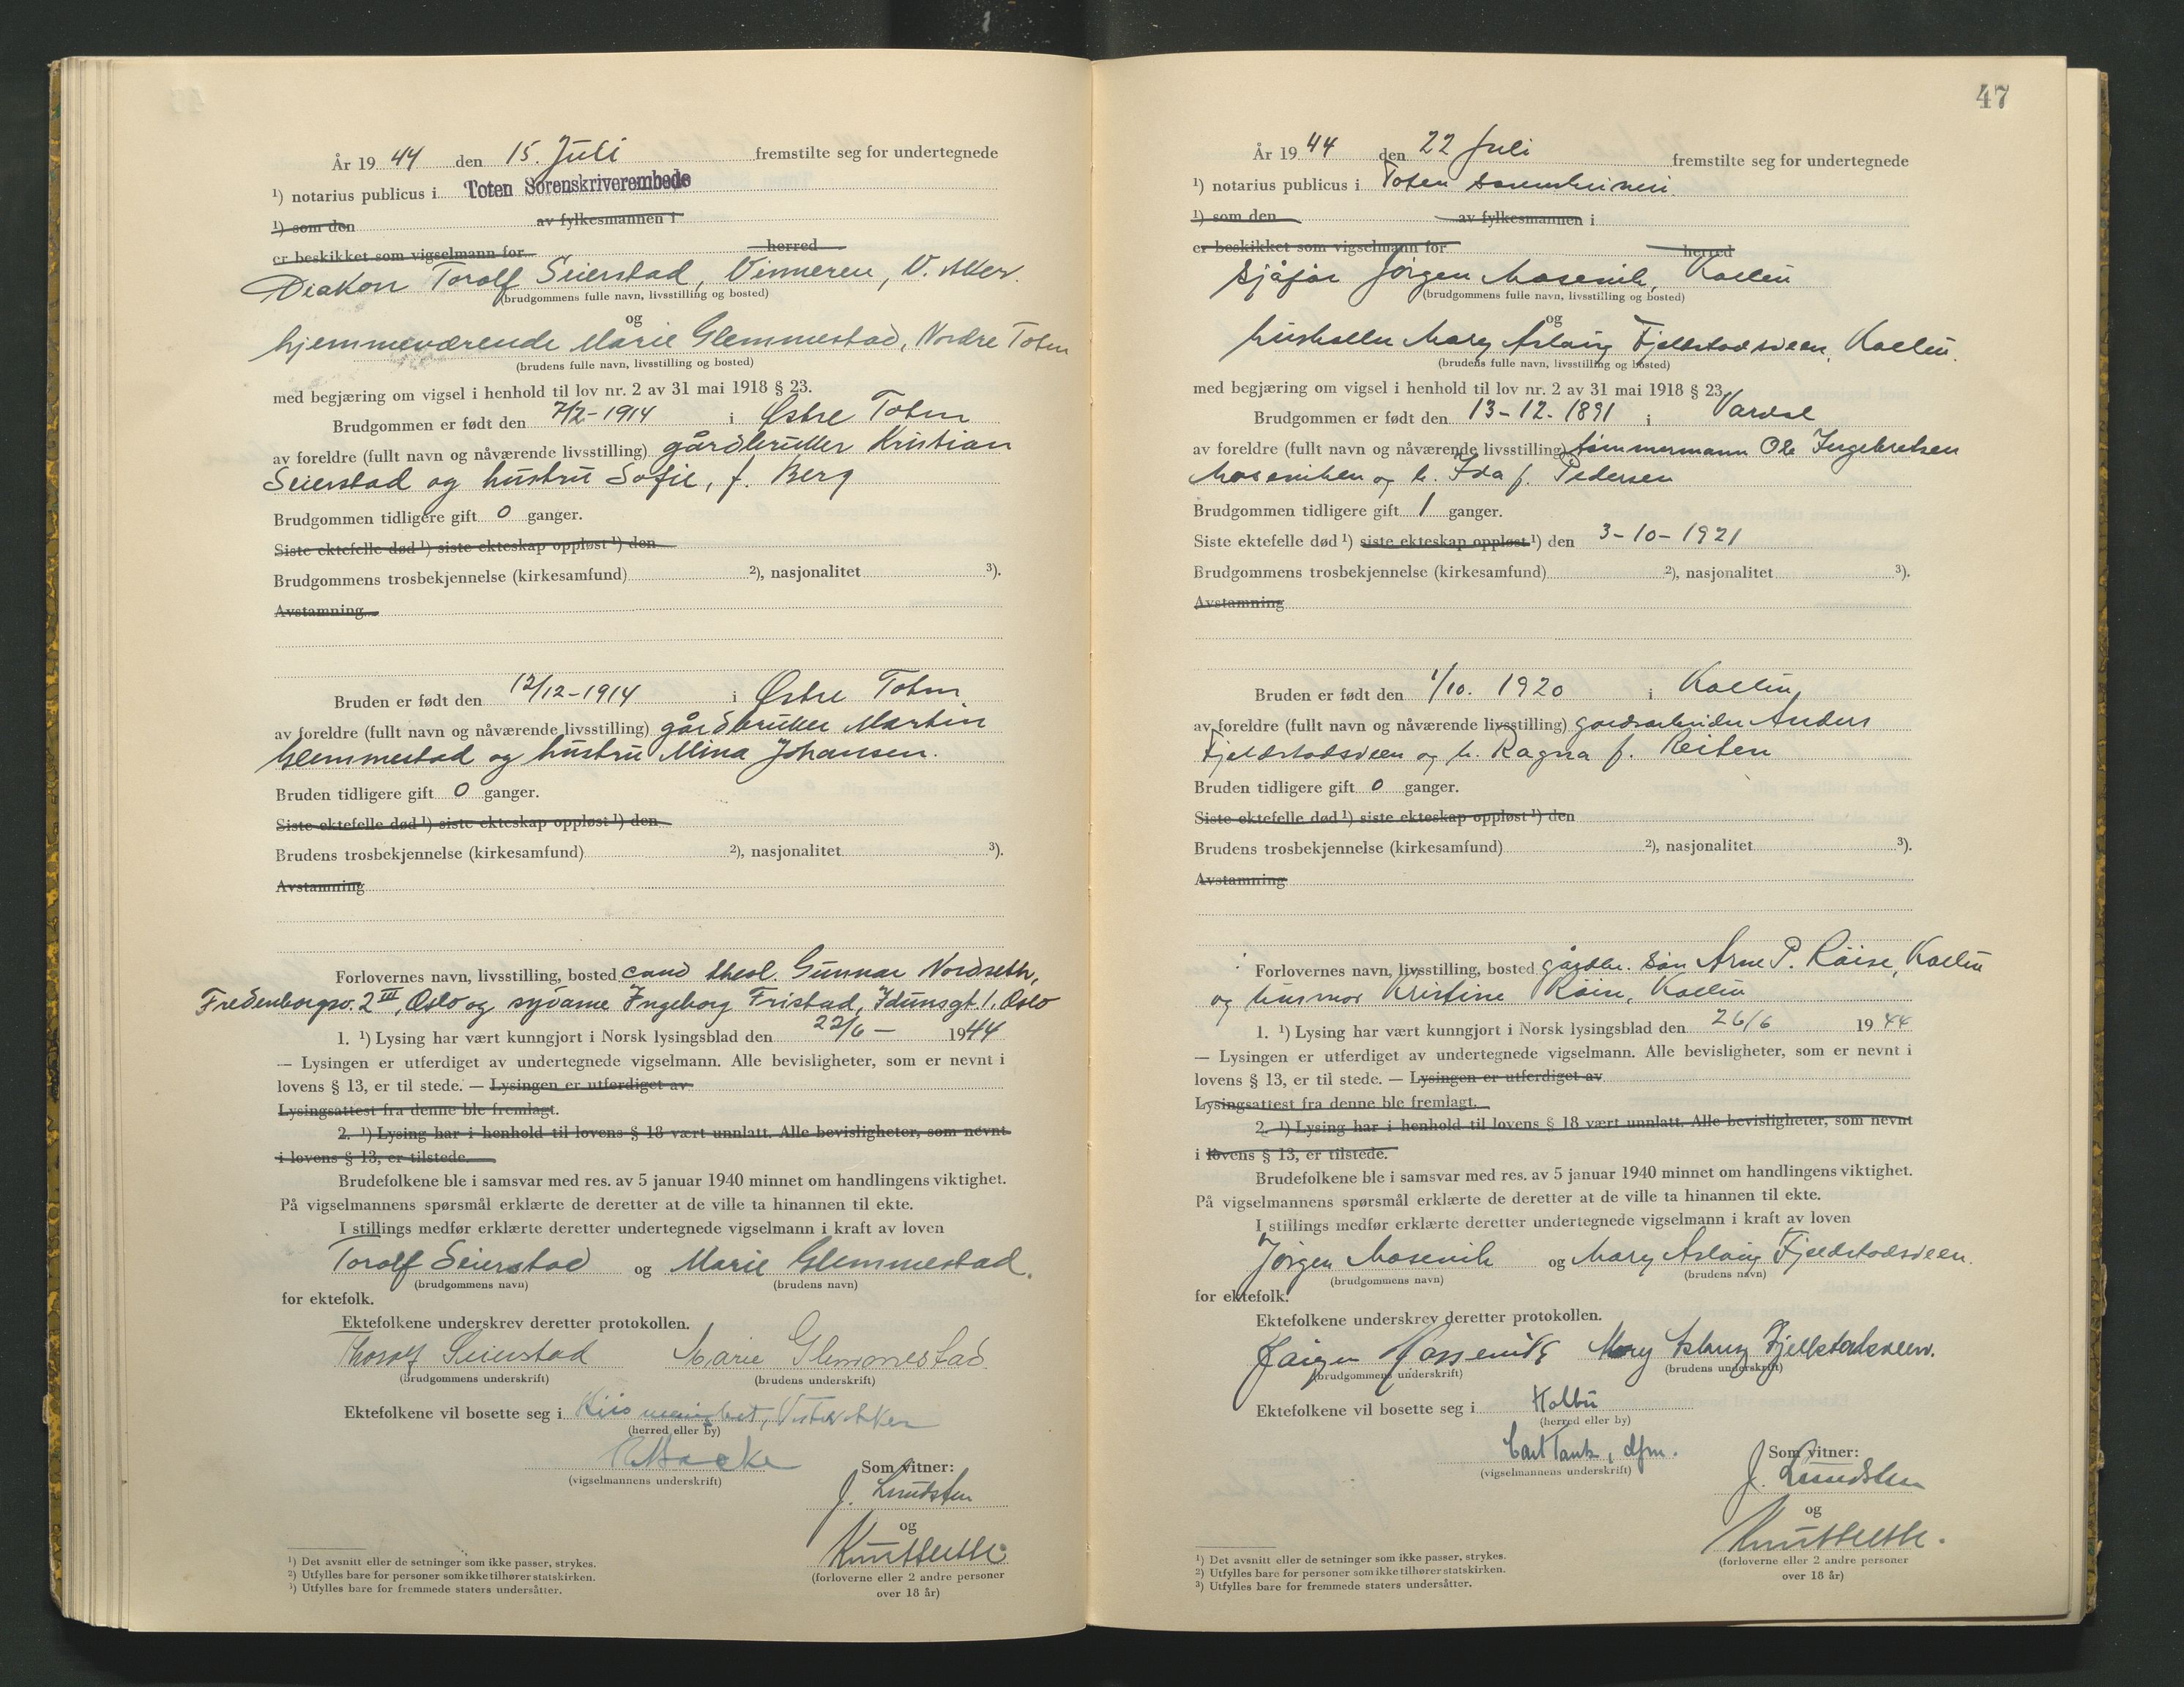 År 19 44 den 15. Juli fremstilte seg for undertegnede
¹) notarius publicus i Toten Sorenskriverembede
¹) som den av fylkesmannen i
er beskikket som vigselmann for herred
Diakon Torolf Seierstad, Vinneren, V. Aker.
(brudgommens fulle navn, livsstilling og bosted)
og
hjemmeværende Marie Glemmestad, Nordre Toten
(brudens fulle navn, livsstilling og bosted)
med begjæring om vigsel i henhold til lov nr. 2 av 31 mai 1918 § 23.
Brudgommen er født den 7/2-1914 i Østre Toten
av foreldre (fullt navn og nåværende livsstilling) gårdbruker Kristian
Seierstad og hustru Sofie, f. Berg
Brudgommen tidligere gift 0 ganger.
Siste ektefelle død ¹) siste ekteskap oppløst ¹) den
Brudgommens trosbekjennelse (kirkesamfund) ²), nasjonalitet ³).
Avstamning
Bruden er født den 12/12-1914 i Østre Toten
av foreldre (fullt navn og nåværende livsstilling) gårdbruker Martin
Glemmestad og hustru Mina Johansen.
Bruden tidligere gift 0 ganger.
Siste ektefelle død ¹) siste ekteskap oppløst ¹) den
Brudens trosbekjennelse (kirkesamfund) ²), nasjonalitet ³).
Avstamning
Forlovernes navn, livsstilling, bosted cand theol. Gunnar Nordseth,
Fredenborgsv. 2 III, Oslo og sydame Ingeborg Fristad, Idunsgt. 1. Oslo
1. ¹) Lysing har vært kunngjort i Norsk lysingsblad den 22/6 - 1944
— Lysingen er utferdiget av undertegnede vigselmann. Alle bevisligheter, som er nevnt i
lovens § 13, er til stede. — Lysingen er utferdiget av
Lysingsattest fra denne ble fremlagt.
2. ¹) Lysing har i henhold til lovens § 18 vært unnlatt. Alle bevisligheter, som nevnt
i lovens § 13, er tilstede.
Brudefolkene ble i samsvar med res. av 5 januar 1940 minnet om handlingens viktighet.
På vigselmannens spørsmål erklærte de deretter at de ville ta hinannen til ekte.
I stillings medfør erklærte deretter undertegnede vigselmann i kraft av loven
Torolf Seierstad og Marie Glemmestad.
(brudgommens navn) (brudens navn)
for ektefolk.
Ektefolkene underskrev deretter protokollen.
Thorolf Seierstad Marie Glemmestad
(brudgommens underskrift) (brudens underskrift)
Ektefolkene vil bosette seg i menighet, Vestre Aker
(herred eller by)
(vigselmannens underskrift)
Som vitner:
J. Lundsten
og
(forloverne eller 2 andre personer
over 18 år)
¹) Det avsnitt eller de setninger som ikke passer, strykes.
²) Utfylles bare for personer som ikke tilhører statskirken.
³) Utfylles bare for fremmede staters undersåtter.
47
År 19 44 den 22 Juli fremstilte seg for undertegnede
¹) notarius publicus i Toten
¹) som den av fylkesmannen i
er beskikket som vigselmann for herred
Sjåfør Jørgen Mosenik, Kolbu
(brudgommens fulle navn, livsstilling og bosted)
og
Mary Aslaug Fjeldstadsveen, Kolbu.
(brudens fulle navn, livsstilling og bosted)
med begjæring om vigsel i henhold til lov nr. 2 av 31 mai 1918 § 23.
Brudgommen er født den 13-12-1891 i Vardal
av foreldre (fullt navn og nåværende livsstilling) tømmermann Ole Ingebretsen
og h. Ida f. Pedersen
Brudgommen tidligere gift 1 ganger.
Siste ektefelle død ¹) siste ekteskap oppløst ¹) den 3-10-1921
Brudgommens trosbekjennelse (kirkesamfund) ²), nasjonalitet ³).
Avstamning
Bruden er født den 1/10. 1920 i Kolbu
av foreldre (fullt navn og nåværende livsstilling) gardsarbeider Anders
Fjeldstadsveen og h. Ragna f. Reiten
Bruden tidligere gift 0 ganger.
Siste ektefelle død ¹) siste ekteskap oppløst ¹) den
Brudens trosbekjennelse (kirkesamfund) ²), nasjonalitet ³).
Avstamning
Forlovernes navn, livsstilling, bosted gårdbr. søn Arne P. Røise, Kolbu
og husmor Kristine Røise, Kolbu
1. ¹) Lysing har vært kunngjort i Norsk lysingsblad den 26/6 19 44
— Lysingen er utferdiget av undertegnede vigselmann. Alle bevisligheter, som er nevnt i
lovens § 13, er til stede. — Lysingen er utferdiget av
Lysingsattest fra denne ble fremlagt.
2. ¹) Lysing har i henhold til lovens § 18 vært unnlatt. Alle bevisligheter, som nevnt
i lovens § 13, er tilstede.
Brudefolkene ble i samsvar med res. av 5 januar 1940 minnet om handlingens viktighet.
På vigselmannens spørsmål erklærte de deretter at de ville ta hinannen til ekte.
I stillings medfør erklærte deretter undertegnede vigselmann i kraft av loven
Jørgen Mosenik og Mary Aslaug Fjeldstadsveen.
(brudgommens navn) (brudens navn)
for ektefolk.
Ektefolkene underskrev deretter protokollen.
Jørgen Mary Aslaug Fjellstadsveen.
(brudgommens underskrift) (brudens underskrift)
Ektefolkene vil bosette seg i Kolbu
(herred eller by)
Carl Tank, dfm.
(vigselmannens underskrift)
Som vitner:
J. Lundsten
og
(forloverne eller 2 andre personer
over 18 år)
¹) Det avsnitt eller de setninger som ikke passer, strykes.
²) Utfylles bare for personer som ikke tilhører statskirken.
³) Utfylles bare for fremmede staters undersåtter.